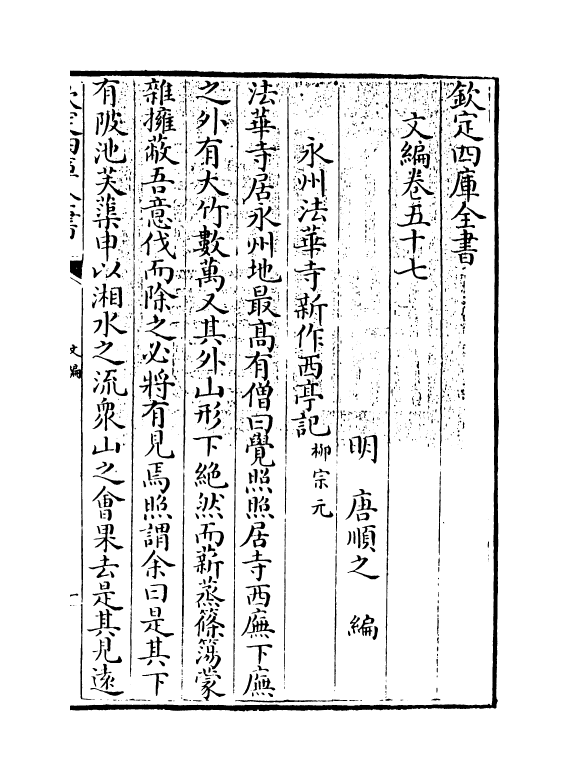 欽定四庫全書
文編卷五十七
明 唐順之 編
永州法華寺新作西亭記柳宗元
法華寺居永州地最髙有僧曰覺照照居寺西廡下廡
之外有大竹數萬又其外山形下絶然而薪蒸篠簜蒙
雜擁蔽吾意伐而除之必將有見焉照謂余曰是其下
有陂池芙蕖申以湘水之流衆山之會果去是其見逺
欽定四庫全書
文編
一